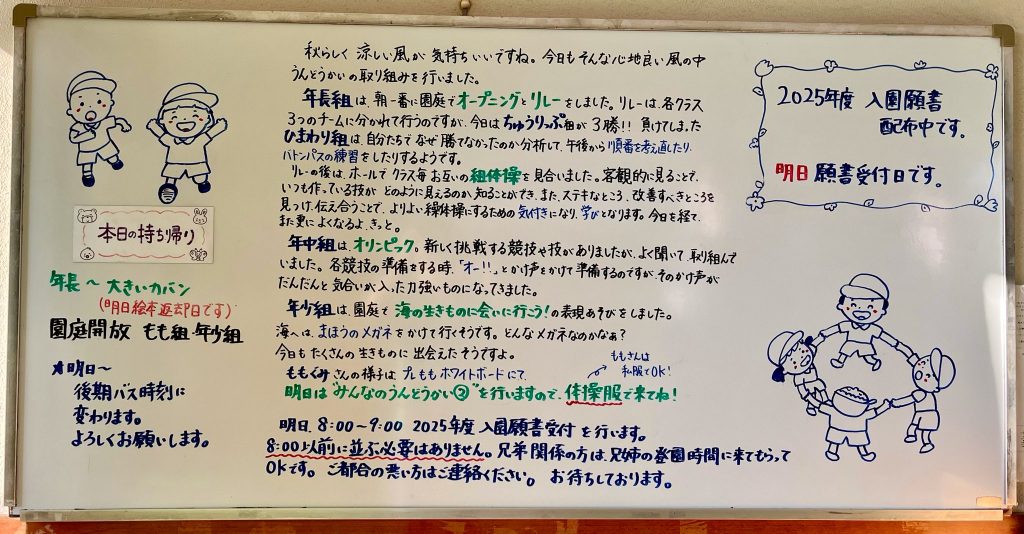 秋らしく 涼しい風が 気持ちいいですね。今日もそんな心地良い風の中
うんどうかいの取り組みを行いました。
年長組は、朝一番に園庭でオープニングとリレーをしました。リレーは、各クラス
3つのチームに分かれて行うのですが、今日はちゅうりっぷ組が3勝!! 負けてしまった
ひまわり組は、自分たちでなぜ勝てなかったのか分析して、午後から順番を考え直したり、
バトンパスの練習をしたりするようです。
リレーの後は、ホールでクラス毎お互いの組体操を見合いました。客観的に見ることで、
いつも作っている技が どのように見えるのか、知ることができ、また、ステキなところ、改善すべきところを
見つけ、伝え合うことで、よりよい組体操にするための気付きになり、学びとなります。今日を経て、
また更によくなるよ、きっと。
年中組は、オリンピック。新しく挑戦する競技や技がありましたが、よく聞いて、取り組んで
いました。各競技の準備をする時、「オー!!」とかけ声をかけて準備するのですが、そのかけ声が
だんだんと気合いが入った力強いものになってきました。
年少組は、園庭で 海の生きものに会いに行こう!の表現あそびをしました。
海へは、まほうのメガネをかけて行くそうです。どんなメガネなのかなぁ?
今日もたくさんの生きものに 出会えたそうですよ。
ももぐみさんの様子は プレもも ホワイトボードにて、
ももさんは
私服でOK!
明日は"みんなのうんどうかい②"を行いますので、体操服で来てね!
明日、8:00~9:00 2025年度 入園願書受付 を行います。
8:00以前に並ぶ必要はありません。兄弟関係の方は、兄姉の登園時間に来てもらって
OKです。ご都合の悪い方はご連絡ください。お待ちしております。
本日の持ち帰り
年長~大きいカバン
(明日絵本返却日です)
園庭開放 もも組・年少組
★明日~
後期バス時刻に
変わります。
よろしくお願いします。
2025年度 入園願書
配布中です。
明日 願書受付日です。